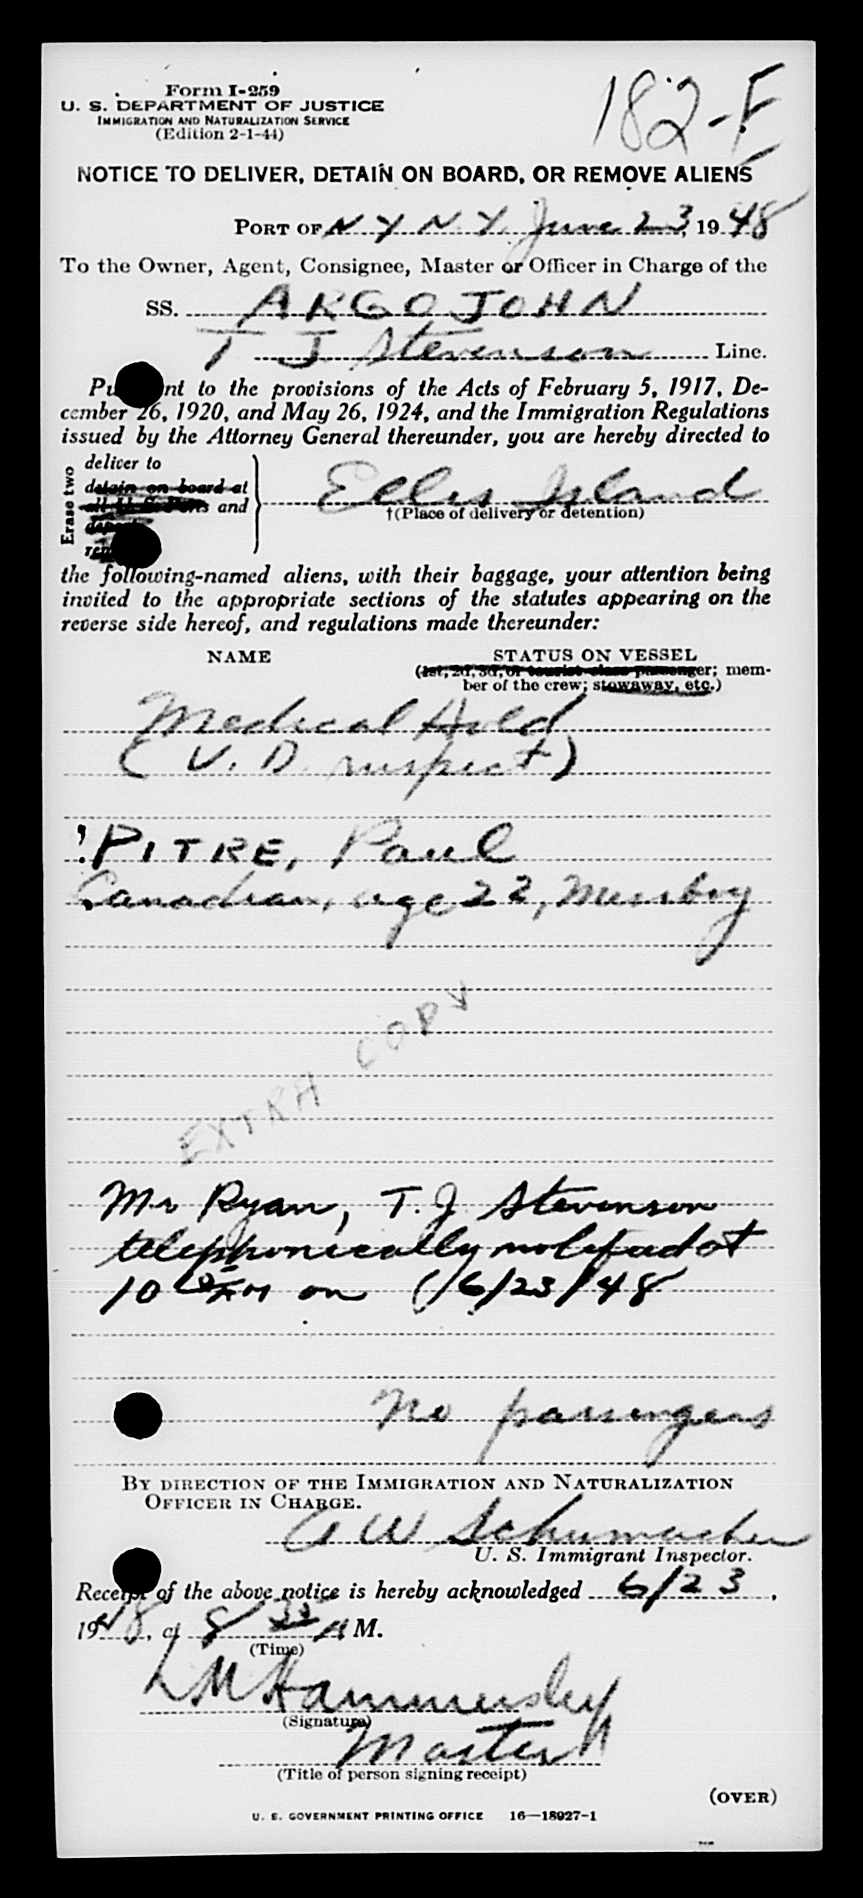 Form I-259
182-F
U. S. DEPARTMENT OF JUSTICE
IMMIGRATION AND NATURALIZATION SERVICE
(Edition 2-1-44)
NOTICE TO DELIVER, DETAIN ON BOARD, OR REMOVE ALIENS
PORT OF N Y N. Y. June 23, 1948
To the Owner, Agent, Consignee, Master or Officer in Charge of the
SS. ARGOJOHN
T J Stevenson Line.
nt to the provisions of the Acts of February 5, 1917, De-
cember 26, 1920, and May 26, 1924, and the Immigration Regulations
issued by the Attorney General thereunder, you are hereby directed to
Erase two
deliver to
detain on board at
and
Ellis Island
†(Place of delivery or detention)
the following-named aliens, with their baggage, your attention being
invited to the appropriate sections of the statutes appearing on the
reverse side hereof, and regulations made thereunder:
NAME STATUS ON VESSEL
(1st, 2d, 3d, or tourist class passenger; mem-
ber of the crew; stowaway, etc.)
Medical Hold
(V. D. suspect)
PITRE, Paul
Canadian, age 22, Messboy
EXTRA COPY
Mr Ryan, T. J. Stevenson
telephonically notified at
10 AM on 6/23/48
No passengers
BY DIRECTION OF THE IMMIGRATION AND NATURALIZATION
OFFICER IN CHARGE.
A W Schumacher
U. S. Immigrant Inspector.
Receipt of the above notice is hereby acknowledged 6/23,
1948, at 8 35 A M.
(Time)
L M Hammersley
(Signature)
Master
(Title of person signing receipt)
(OVER)
U. S. GOVERNMENT PRINTING OFFICE 16—18927-1